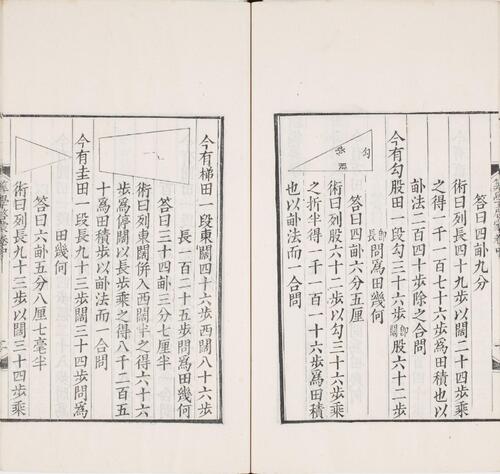 答曰四畝九分
術曰列長四十九歩以闊二十四歩乘
之得一千一百七十六歩爲田積也以
畝法二百四十歩除之合問
勾
今有勾股田一段勾三十六歩即闊股六十二歩
即長問爲田幾何
答曰四畝六分五厘
術曰列股六十二歩以勾三十六歩乘
之折半得一千一百一十六歩爲田積
也以畝法而一合問
今有梯田一段東闊四十六歩西闊八十六歩
長一百二十五歩問爲田幾何
答曰三十四畝三分七厘半
術曰列東闊併入西闊半之得六十六
歩爲停闊以長歩乘之得八千二百五
十爲田積歩以畝法而一合問
今有圭田一段長九十三歩闊三十四歩問爲
田幾何
答曰六畝五分八厘七毫半
術曰列長九十三歩以闊三十四歩乘